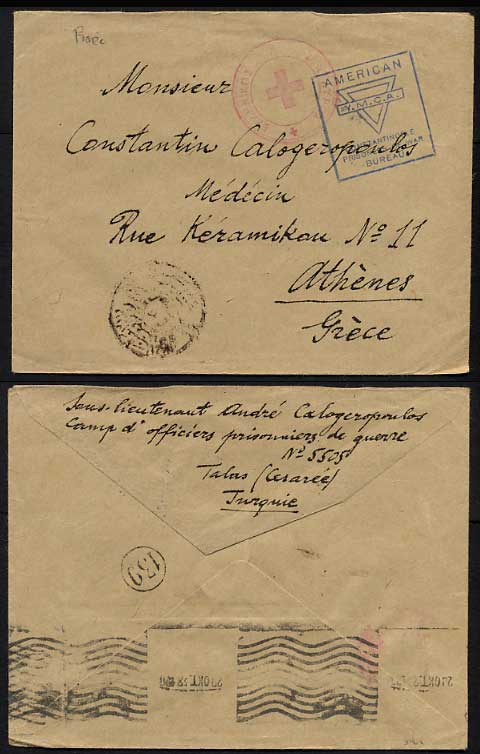 Monsieur
AMERICAN
Y.M.C.A.
CONSTANTINOPLE
PRISONERS OF WAR
BUREAU
Constantin Calogeropoulos
Médécin
Rue Kéramikou Nº 11
Athènes
Grèce
Sous-lieutenant André Calogeropoulos
Camp d'officiers prisonniers de guerre
Nº 5505
Talas (Cesarée)
Turquie
139
OKT
OKT